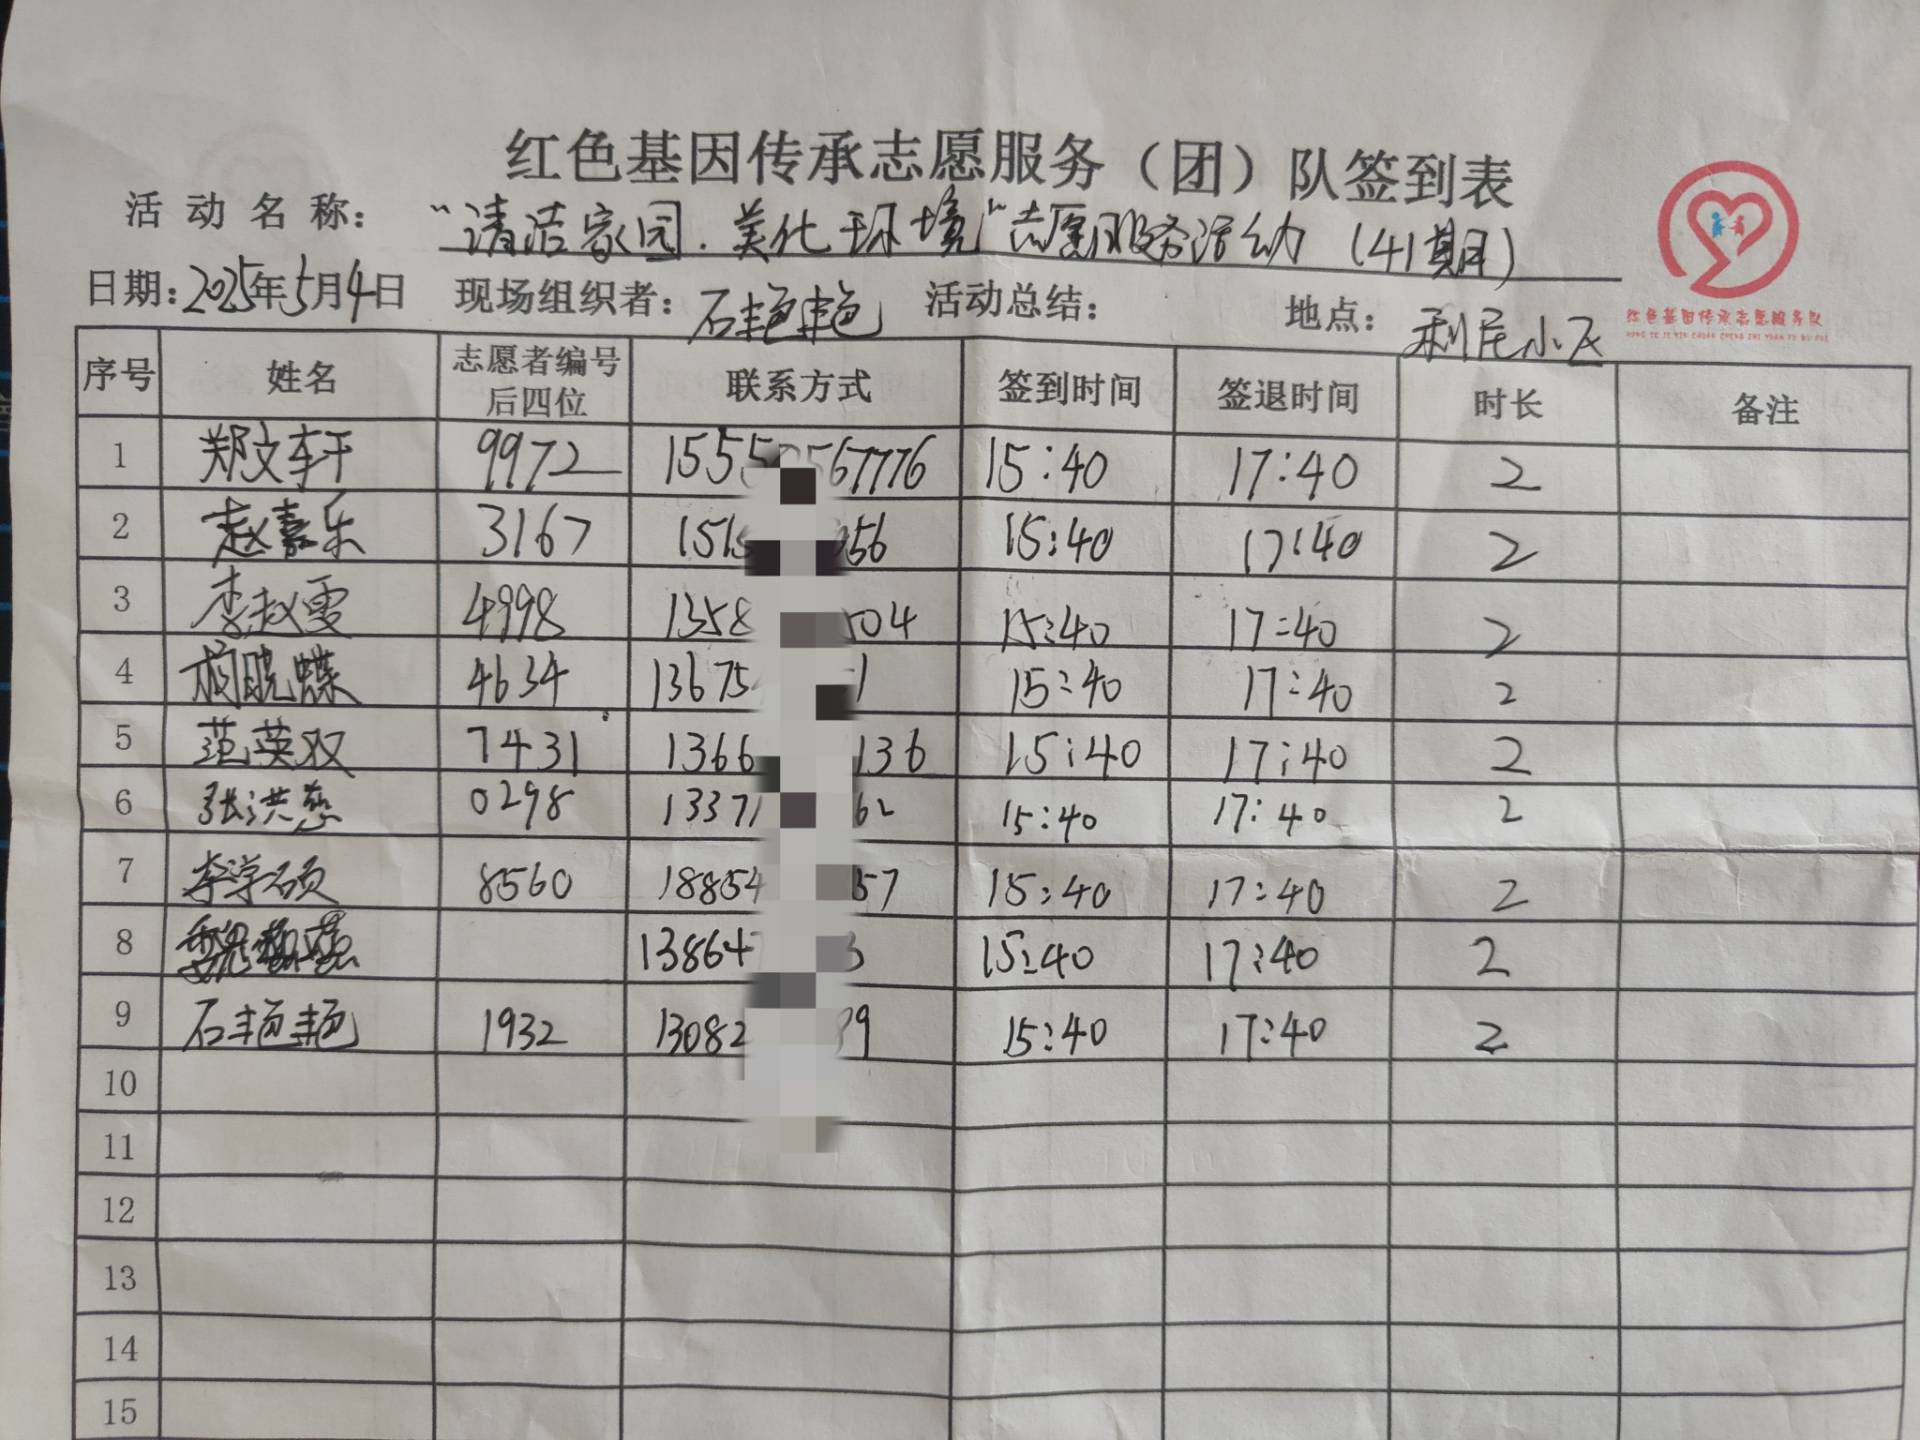 红色基因传承志愿服务（团）队签到表
活动名称： “清洁家园.美化环境”志愿服务活动（41期）
日期：2025年5月4日 现场组织者：石艳艳 活动总结： 地点：利民小区
红色基因传承志愿服务队
HONG SE JI YIN CHUAN CHENG ZHI YUAN FU WU DUI
序号 姓名 志愿者编号后四位 联系方式 签到时间 签退时间 时长 备注
1 郑文轩 9972 155 567776 15:40 17:40 2
2 赵嘉乐 3167 151 056 15:40 17:40 2
3 李赵雯 4998 1358 504 15:40 17:40 2
4 杨晓蝶 4634 13675 1 15:40 17:40 2
5 范英双 7431 1366 136 15:40 17:40 2
6 张洪慈 0298 13371 62 15:40 17:40 2
7 李学硕 8560 18854 57 15:40 17:40 2
8 138647 3 15:40 17:40 2
9 石艳艳 1932 13082 39 15:40 17:40 2
10
11
12
13
14
15